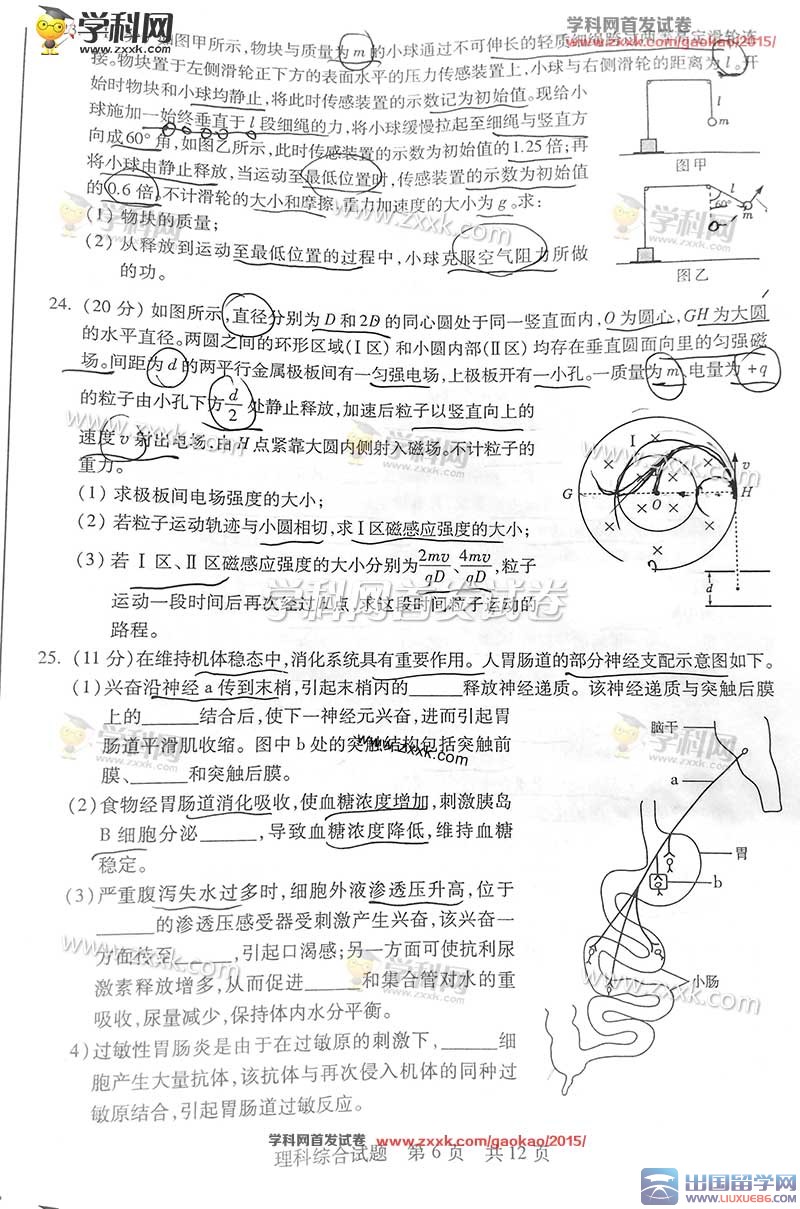 学科网首发试卷 www.zxxk.com/gaokao/2015/
学科网
www.zxxk.com
如图甲所示,物块与质量为m的小球通过不可伸长的轻质细绳跨过两等高定滑轮连
接。物块置于左侧滑轮正下方的表面水平的压力传感装置上,小球与右侧滑轮的距离为l。开
始时物块和小球均静止,将此时传感装置的示数记为初始值。现给小
球施加一始终垂直于l段细绳的力,将小球缓慢拉起至细绳与竖直方
向成60°角,如图乙所示,此时传感装置的示数为初始值的1.25倍;再
将小球由静止释放,当运动至最低位置时,传感装置的示数为初始值
的0.6倍。不计滑轮的大小和摩擦,重力加速度的大小为g。求:
(1) 物块的质量;
(2) 从释放到运动至最低位置的过程中,小球克服空气阻力所做
的功。
l
m
图甲
l
60°
m
图乙
24. (20分) 如图所示,直径分别为D和2D的同心圆处于同一竖直面内,O为圆心,GH为大圆
的水平直径。两圆之间的环形区域(Ⅰ区)和小圆内部(Ⅱ区)均存在垂直圆面向里的匀强磁
场。间距为d的两平行金属极板间有一匀强电场,上极板开有一小孔。一质量为m、电量为+q
的粒子由小孔下方d/2处静止释放,加速后粒子以竖直向上的
速度v射出电场,由H点紧靠大圆内侧射入磁场。不计粒子的
重力。
(1) 求极板间电场强度的大小;
(2) 若粒子运动轨迹与小圆相切,求Ⅰ区磁感应强度的大小;
(3) 若Ⅰ区、Ⅱ区磁感应强度的大小分别为2mv/qD、4mv/qD,粒子
运动一段时间后再次经过H点,求这段时间粒子运动的
路程。
Ⅰ
v
G
O
H
d
学科网首发试卷
25. (11分)在维持机体稳态中,消化系统具有重要作用。人胃肠道的部分神经支配示意图如下。
(1)兴奋沿神经a传到末梢,引起末梢内的______释放神经递质。该神经递质与突触后膜
上的______结合后,使下一神经元兴奋,进而引起胃
肠道平滑肌收缩。图中b处的突触结构包括突触前
膜、______和突触后膜。
(2)食物经胃肠道消化吸收,使血糖浓度增加,刺激胰岛
B细胞分泌______,导致血糖浓度降低,维持血糖
稳定。
(3)严重腹泻失水过多时,细胞外液渗透压升高,位于
______的渗透压感受器受刺激产生兴奋,该兴奋一
方面传至______,引起口渴感;另一方面可使抗利尿
激素释放增多,从而促进______和集合管对水的重
吸收,尿量减少,保持体内水分平衡。
4)过敏性胃肠炎是由于在过敏原的刺激下,______细
胞产生大量抗体,该抗体与再次侵入机体的同种过
敏原结合,引起胃肠道过敏反应。
脑干
a
胃
b
小肠
学科网首发试卷 www.zxxk.com/gaokao/2015/
理科综合试题 第6页 共12页
出国留学网
WWW.LIUXUE86.COM